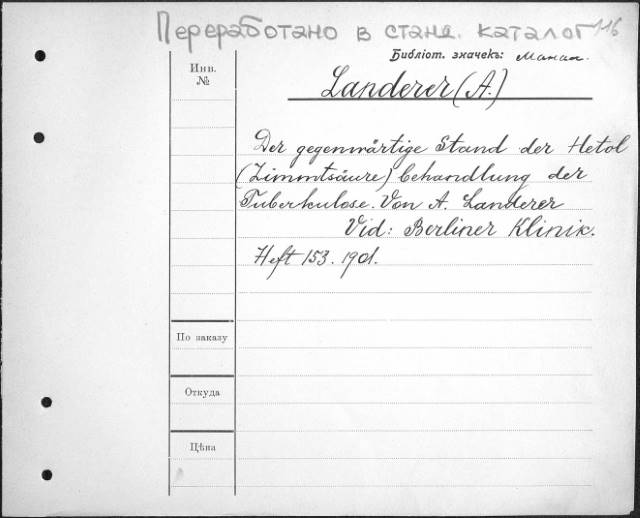 Переработано в станд. каталог 116
Библіот. значекъ:
Инв.
№
Landerer (A.)
Der gegenwärtige Stand der Hetol
(Zimmtsäure) behandlung der
Tuberkulose. Von A. Landerer
Vid: Berliner Klinik.
Heft 153. 1901.
По заказу
Откуда
Цѣна